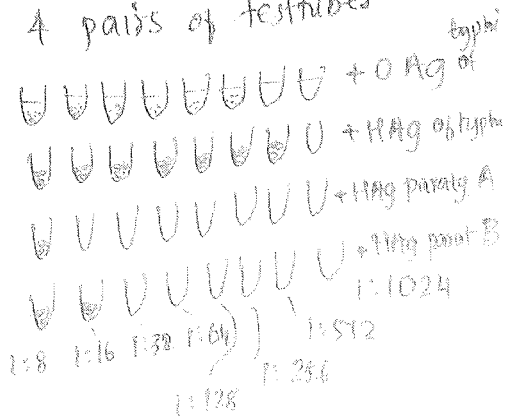 4 pairs of testtubes
+ O Ag of typhi
+ HAg of typhi
+ HAg paraty A
+ HAg parat B
1:1024
1:8 1:16 1:32 1:64 1:512
1:128 1:256